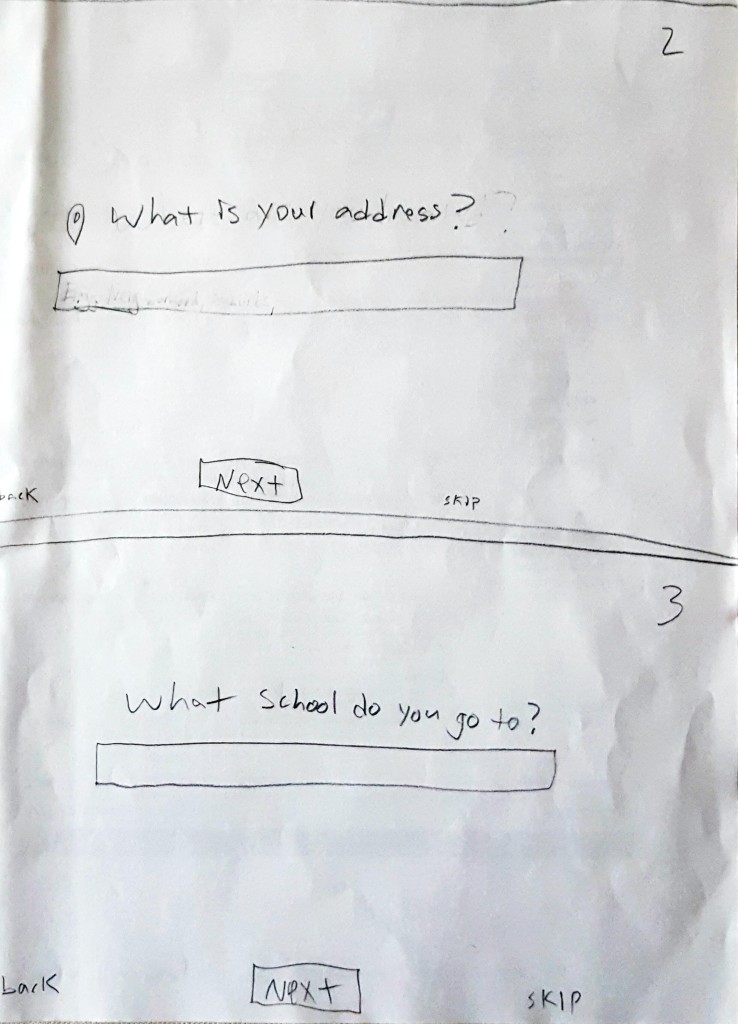 2
What is your address?
Next
skip
3
What school do you go to?
back
Next
SKIP